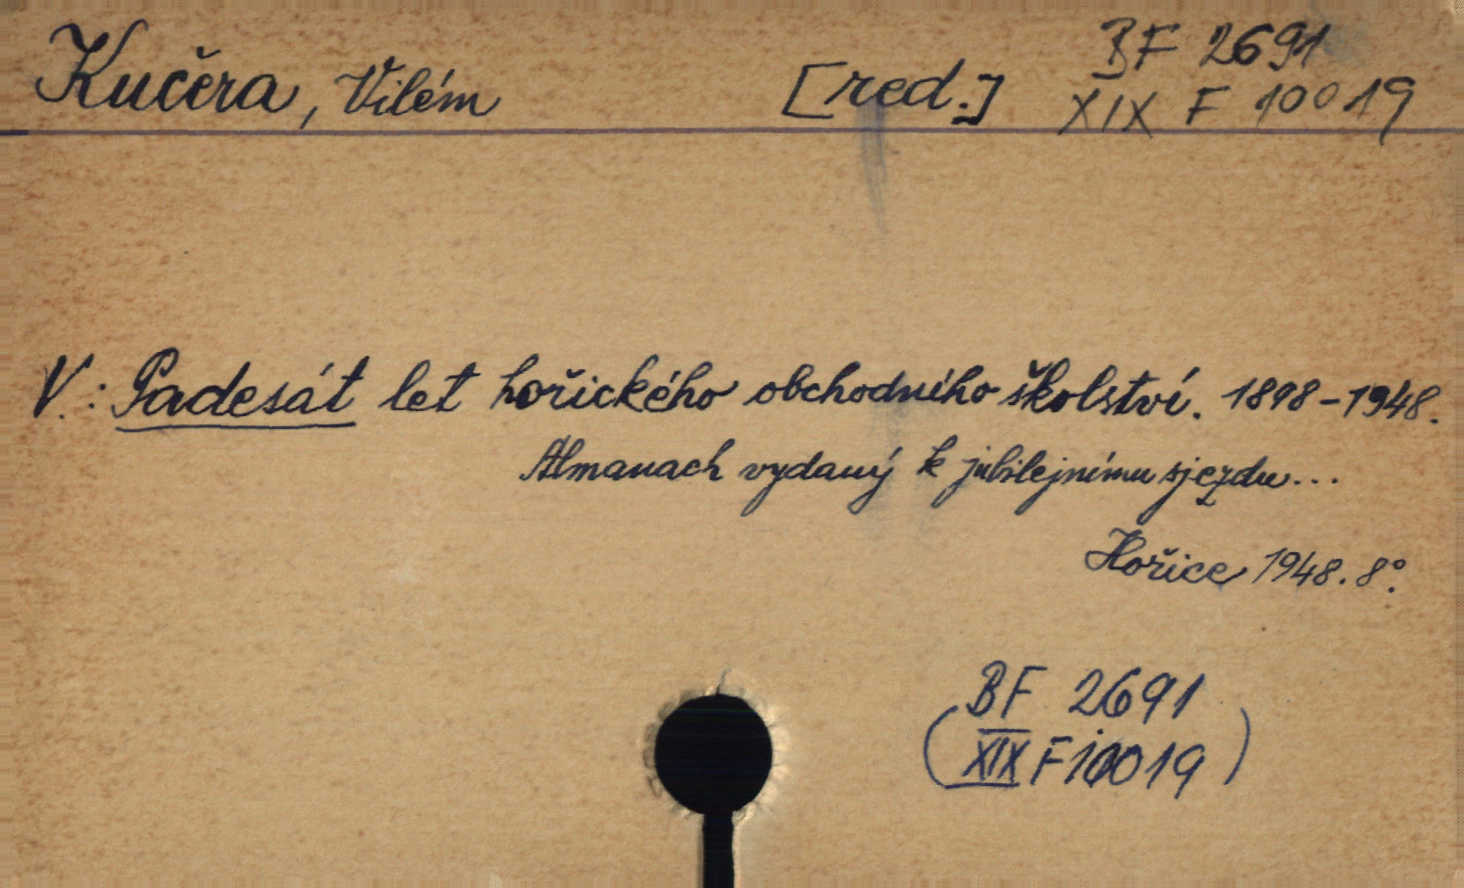 Kučera, Vilém [red.] BF 2691
XIX F 10019
V.: Padesát let hořického obchodního školství. 1898-1948.
Almanach vydaný k jubilejnímu sjezdu...
Hořice 1948. 8°.
BF 2691
(XIX F 10019)